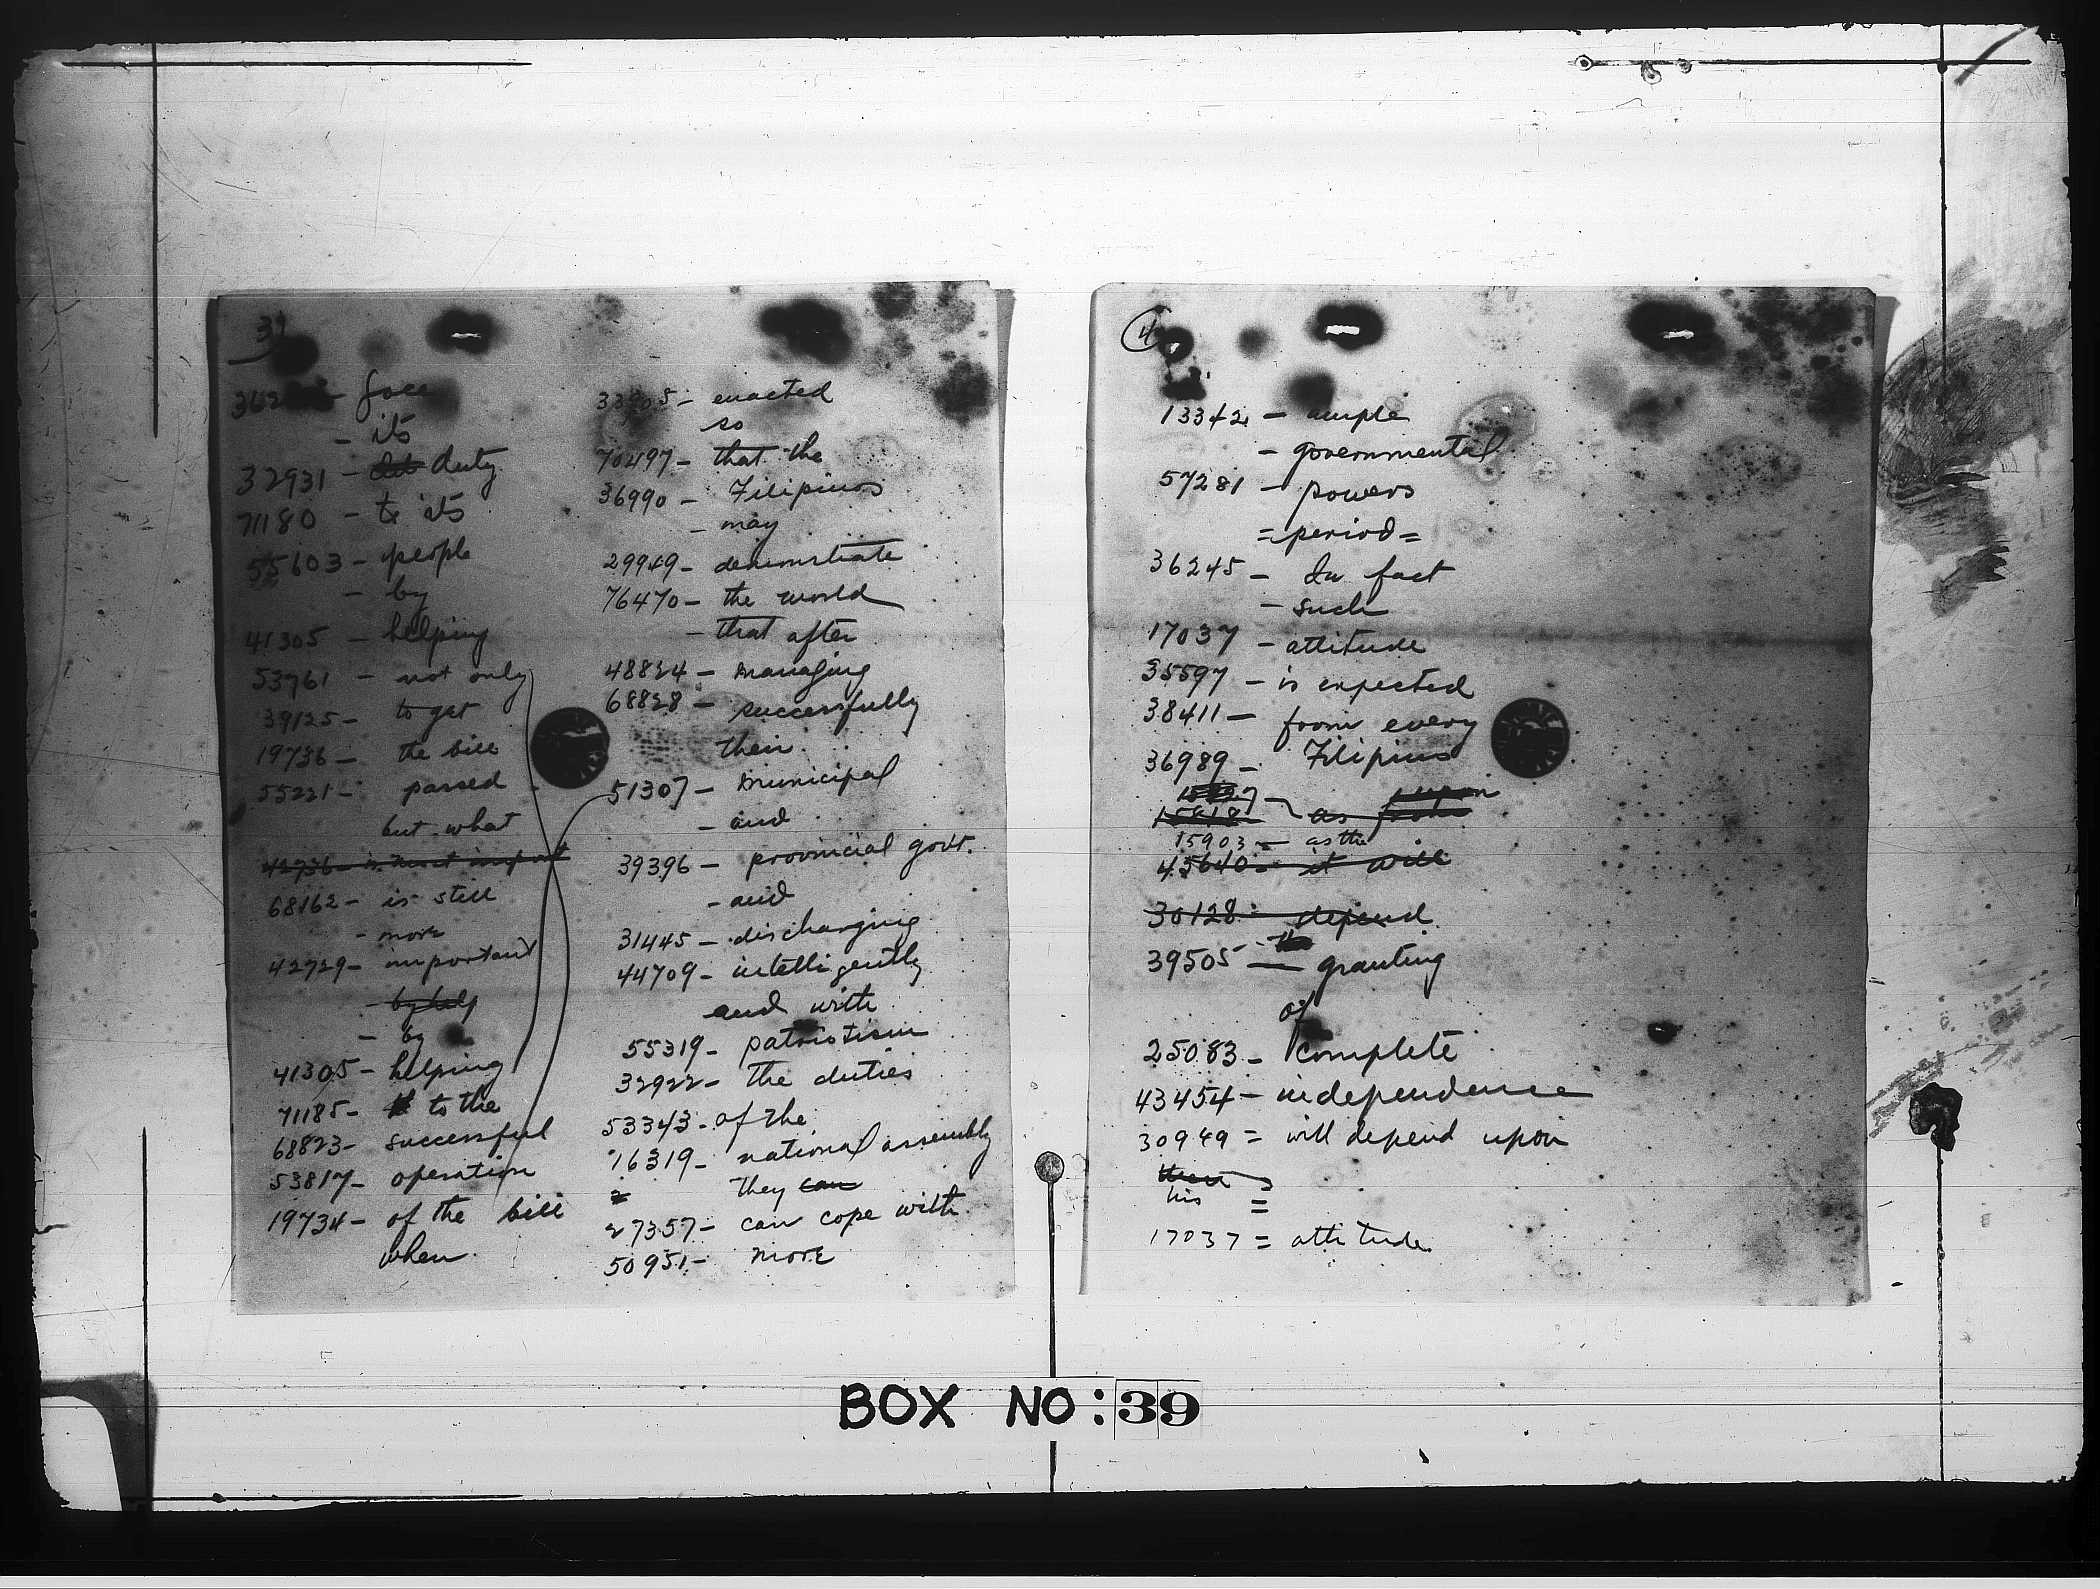 3
- its
32931 - duty
71180 - to its
55603 - people
- by
41305 - helping
53761 - not only
39125 - to get
19736 - the bill
55221 - passed
but what
42736 - is most import
68162 - is still
- more
42729 - important
- by help
- by
41305 - helping
71185 - to the
68823 - successful
53817 - operation
19734 - of the bill
when
33905 - enacted
so
70497 - that the
36990 - Filipinos
- may
29949 - demonstrate
76470 - the world
- that after
48824 - managing
68828 - successfully
their
51307 - municipal
- and
39396 - provincial govt.
- and
31445 - discharging
44709 - intelligently
and with
55319 - patriotism
32922 - the duties
53343 - of the
16319 - national assembly
they can
27357 - can cope with
50951 - more
4
13342 - ample
- governmental
57281 - powers
= period =
36245 - In fact
- such
17037 - attitude
35597 - is expected
38411 - from every
36989 - Filipino
upon
15818 - as from
15903 - as the
45640 - it will
30128 - depend
39505 - granting
of
25083 - complete
43454 - independence
30949 = will depend upon
his =
17037 = attitude.
BOX NO: 39